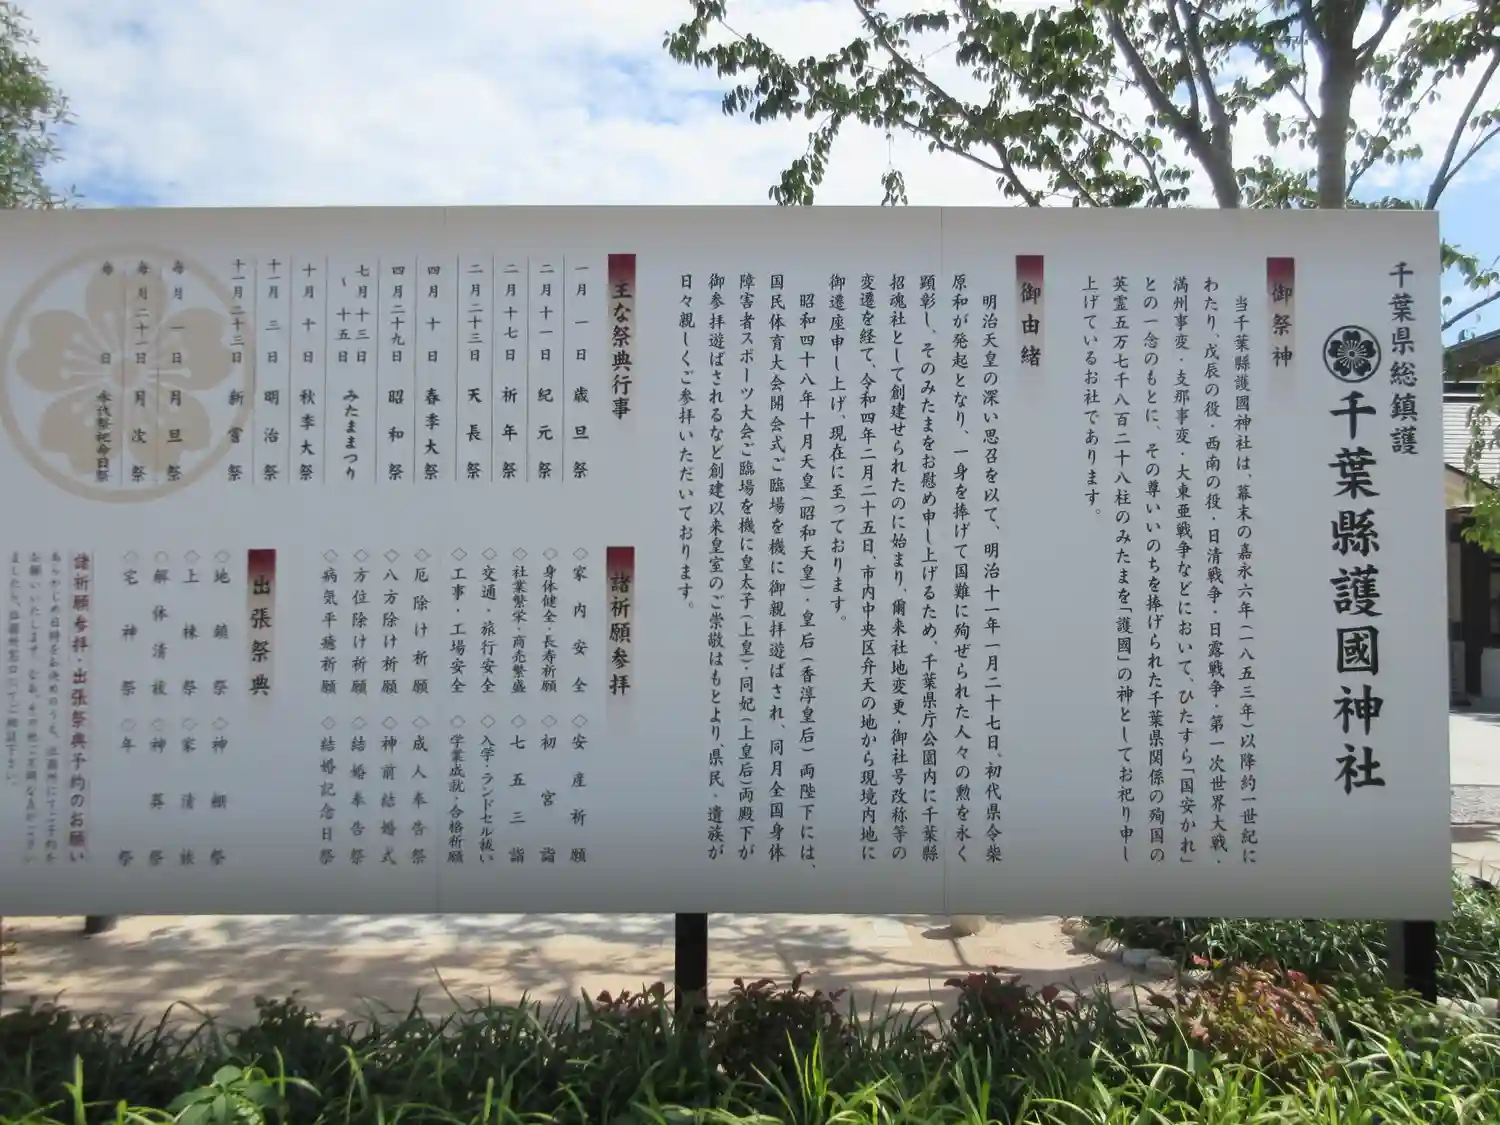 千葉県総鎮護
千葉縣護國神社
御祭神
当千葉縣護國神社は、幕末の嘉永六年(一八五三年)以降約一世紀に
わたり、戊辰の役・西南の役・日清戦争・日露戦争・第一次世界大戦・
満州事変・支那事変・大東亜戦争などにおいて、ひたすら「国安かれ」
との一念のもとに、その尊いいのちを捧げられた千葉県関係の殉国の
英霊五万七千八百二十八柱のみたまを「護國」の神としてお祀り申し
上げているお社であります。
御由緒
明治天皇の深い思召を以て、明治十一年一月二十七日、初代県令柴
原和が発起となり、一身を捧げて国難に殉ぜられた人々の勲を永く
顕彰し、そのみたまをお慰め申し上げるため、千葉県庁公園内に千葉縣
招魂社として創建せられたのに始まり、爾来社地変更・御社号改称等の
変遷を経て、令和四年二月二十五日、市内中央区弁天の地から現境内地に
御遷座申し上げ、現在に至っております。
昭和四十八年十月天皇(昭和天皇)・皇后(香淳皇后)両陛下には、
国民体育大会開会式ご臨場を機に御親拝遊ばされ、同月全国身体
障害者スポーツ大会ご臨場を機に皇太子(上皇)・同妃(上皇后)両殿下が
御参拝遊ばされるなど創建以来皇室のご崇敬はもとより、県民・遺族が
日々親しくご参拝いただいております。
主な祭典行事
一月一日 歳旦祭
二月十一日 紀元祭
二月十七日 祈年祭
二月二十三日 天長祭
四月十日 春季大祭
四月二十九日 昭和祭
七月十三日~十五日 みたままつり
十月十日 秋季大祭
十一月三日 明治祭
十一月二十三日 新嘗祭
毎月一日 月旦祭
毎月二十一日 月次祭
毎日 永代祭祀命日祭
諸祈願参拝
◇家内安全 ◇安産祈願
◇身体健全・長寿祈願 ◇初宮詣
◇社業繁栄・商売繁盛 ◇七五三詣
◇交通・旅行安全 ◇入学・ランドセル祓い
◇工事・工場安全 ◇学業成就・合格祈願
◇厄除け祈願 ◇成人奉告祭
◇八方除け祈願 ◇神前結婚式
◇方位除け祈願 ◇結婚奉告祭
◇病気平癒祈願 ◇結婚記念日祭
出張祭典
◇地鎮祭 ◇神棚祭
◇上棟祭 ◇家清祓
◇解体清祓 ◇神葬祭
◇宅神祭 ◇年祭
諸祈願参拝・出張祭典予約のお願い
あらかじめ日時をお決めのうえ、社務所にてご予約を
お願いいたします。なお、その他ご不明な点がござい
ましたら、社務所窓口にてご相談下さい。